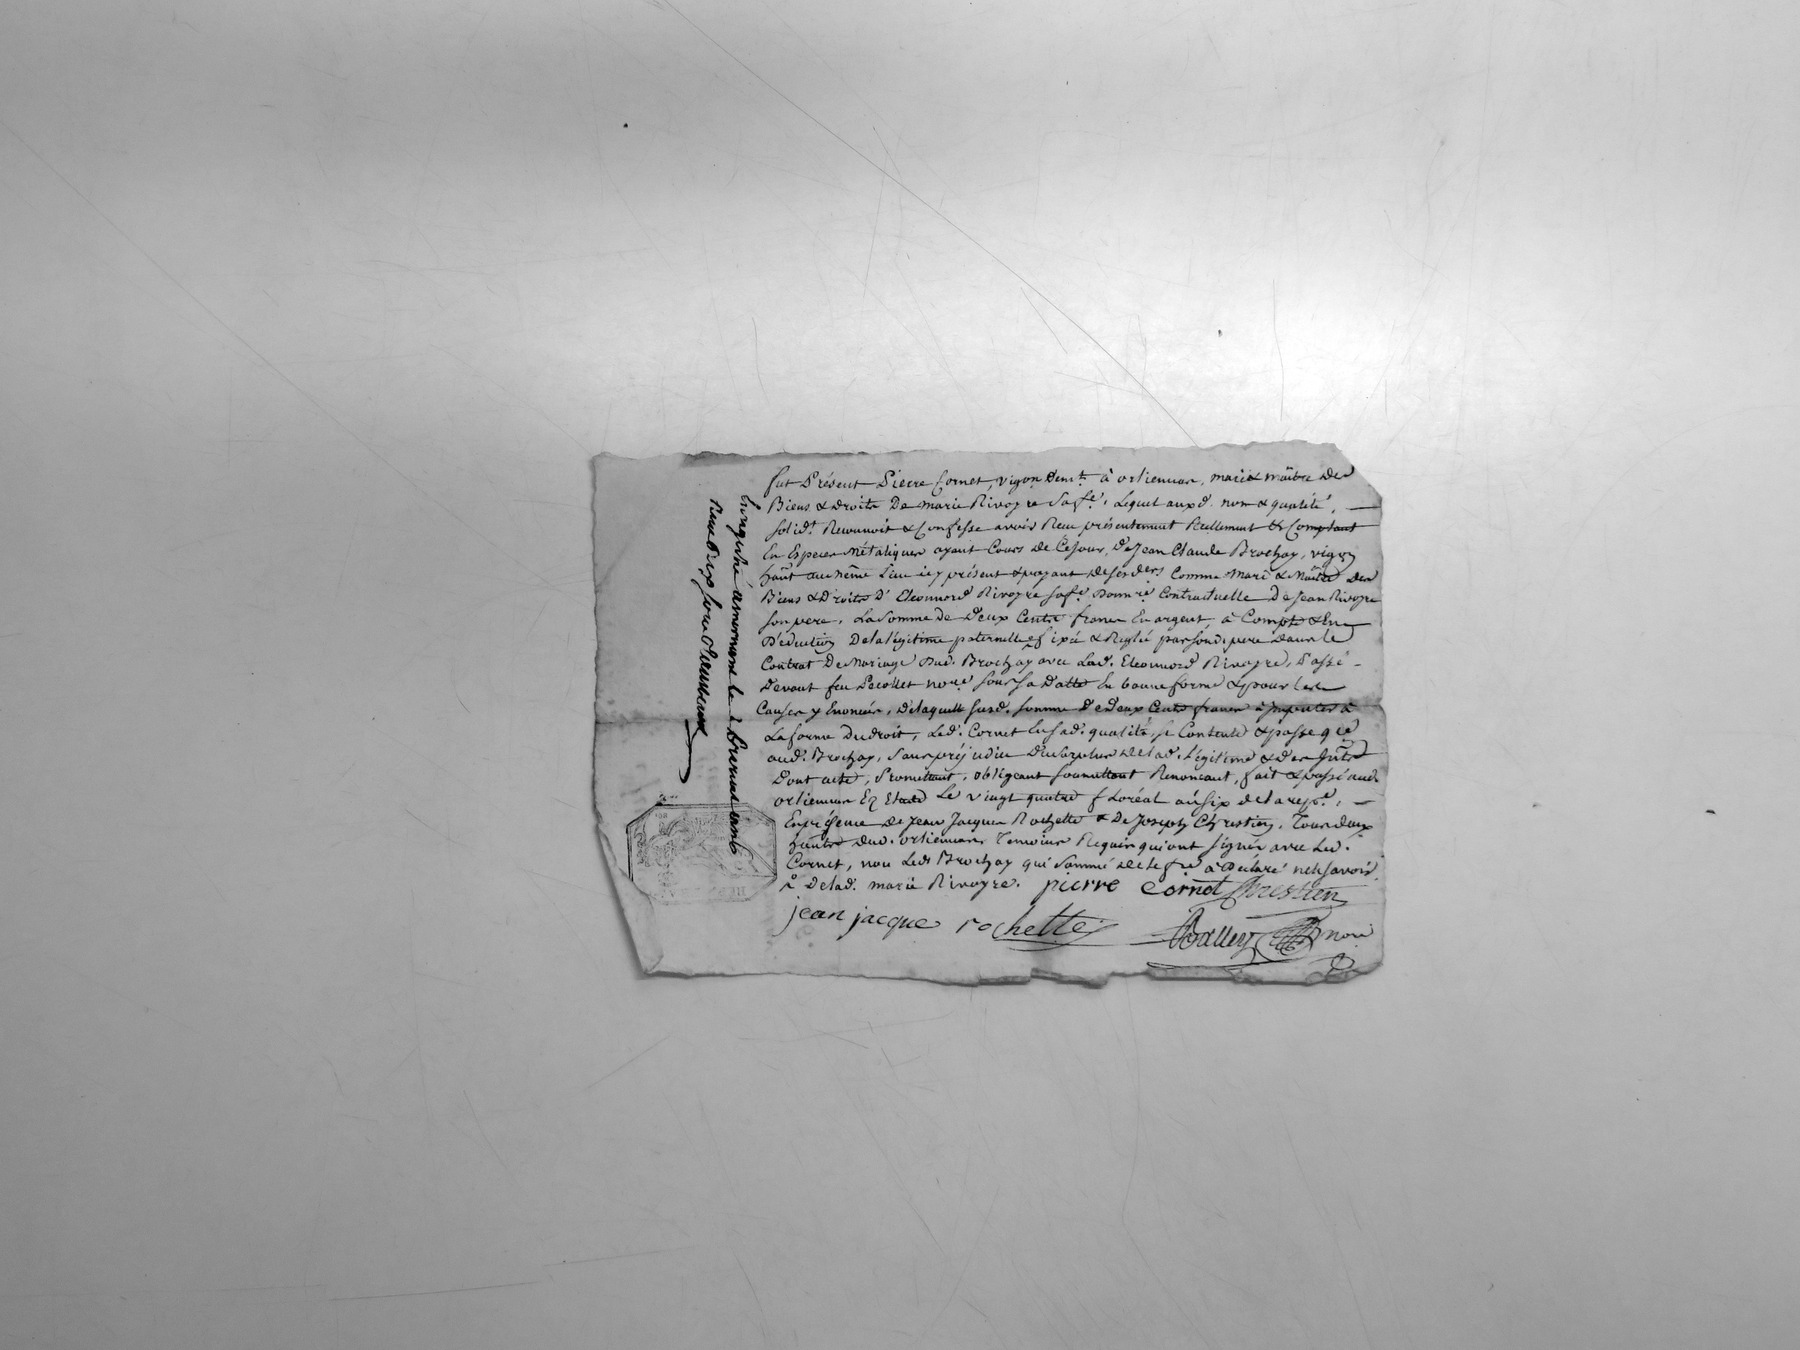 fut Présent Pierre Cornet, vigon demt. à orlienas, mari & maître des
Biens & droits De marie Rivoyre sa fe. Lequel auxd. nom & qualité,
solidt. Reconnoit & Confesse avoir Reçu présentement Réellement & Comptant
En Espèces métaliques ayant Cours de Ce jour, De Jean Claude Brochay, vigon
hant au même Lieu icy présent & payant de ses ders Comme Mari & Maître des
Biens & Droits D'Eleonnord Rivoyre sa fe. Donnre. Contractuelle De Jean Rivoyre
son pere, La somme de Deux Cents francs En argent, à Compte & En
Déduction De la légitime paternelle fixée & Réglée par sond. pere dans le
Contrat De Mariage Dud. Brochay avec Lad. Eleonnord Rivoyre, Passé
Devant feu Pecollet nore sous sa Datte En bonne forme & pour les
Causes y Enoncées, De laquelle susd. somme De Deux Cents francs à imputer à
La forme Du droit, Led. Cornet En sad. qualité, se Contente & passe qce
aud. Brochay, sans préjudice Du surplus De lad. légitime & des Intts
Dont acte, Promettant, obligeant soumettant Renoncant, fait & passé aud.
orlienas En Etude Le vingt quatre floréal an six de la repe.
En présence De Jean Jacques Rochette & De Joseph Chrestien, Tous deux
hants dud. orlienas Temoins Requis qui ont signés avec Led.
Cornet, non Led. Brochay qui sommé De le fre à Déclaré ne le savoir,
De lad. marie Rivoyre. pierre cornet Chrestien
jean jacque rochette
nore
Enregistré à mornant le 2
Reçu